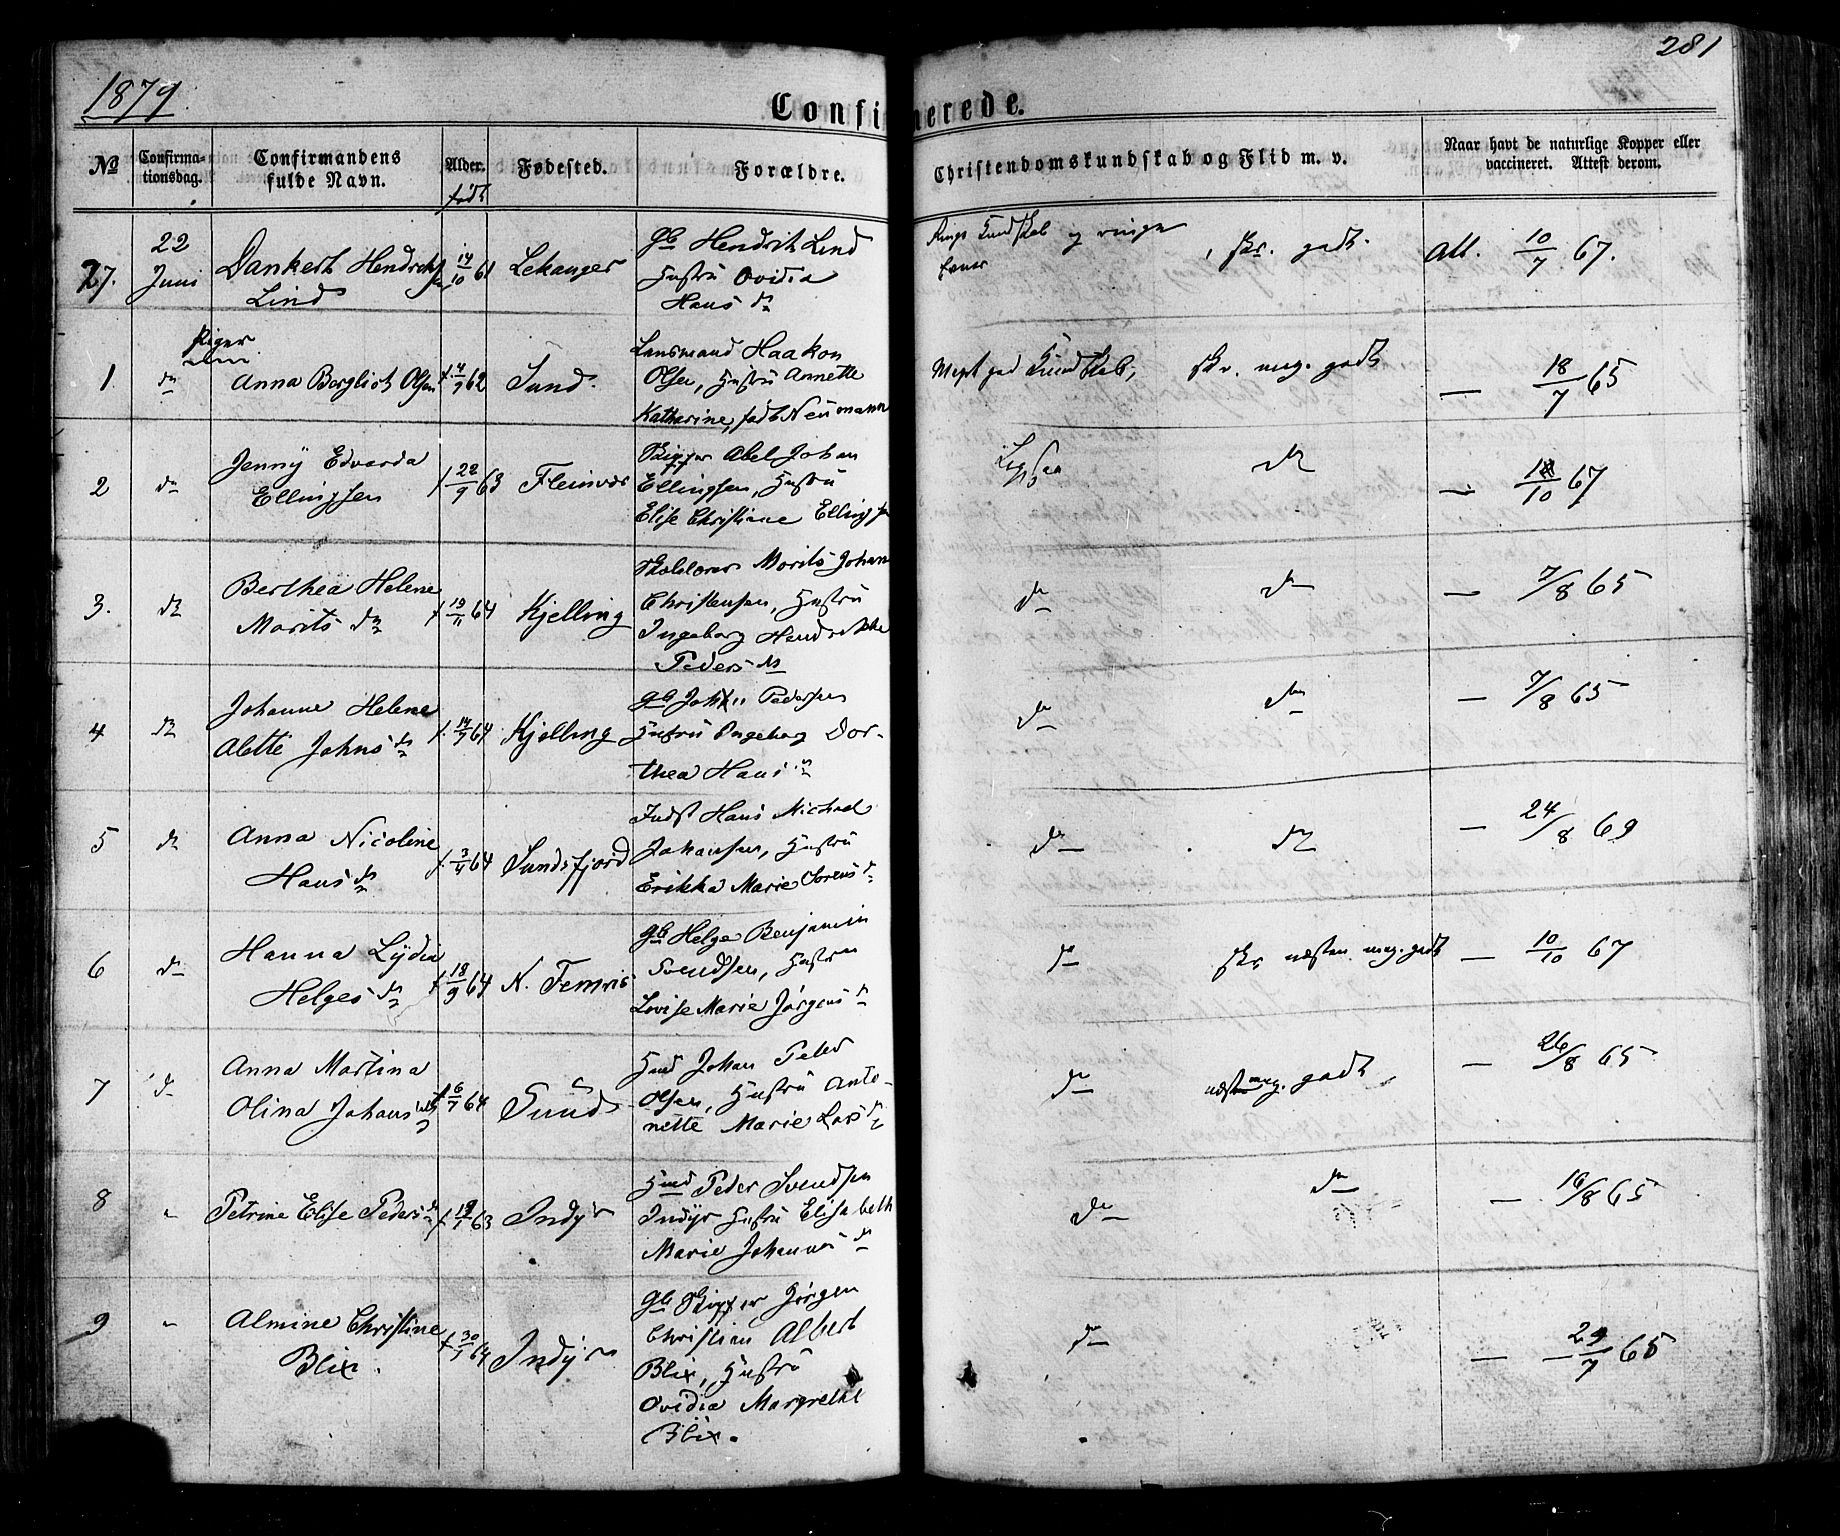 1879
281
Confirmerede.
No
Confirma-
tionsdag.
Confirmandens
fulde Navn.
Alder.
født
Fødested.
Forældre.
Christendomskundskab og Flid m. v.
Naar havt de naturlige Kopper eller
vaccineret. Attest derom.
27.
22
Juni
Dankert Hendrik
Lind
14/10 61
Lekanger
Gb Hendrik Lind
Hustru Ovidia
Hans dr
Ringe Kundskab og ringe
Evner
, skr. godt.
Att. 10/7 67.
Piger
1.
do
Anna Bergliot Olsen
f. 4/9 62
Sund.
Lensmand Haakon
Olsen, Hustru Annette
Katharine, født Neumann
Meget god Kundskab,
skr. meg. godt
— 18/7 65
2
do
Jenny Edvarda
Ellingsen
f. 22/9 63
Fleinvær
Skipper Abel Johan
Ellingsen, Hustru
Elise Christiane Ellingsen
Ligesaa
do
— /10 67
3.
do
Berthea Helene
Morits dr
f. 19/11 64
Kjelling
Morits Johan
Christensen, Hustru
Ingeborg Hendrikke
Peders dr
do
do
— 7/8 65
4
do
Johanne Helene
Alette Johns dr
f. 14/7 64
Kjelling
Gb John Pedersen
Hustru Ingeborg Dor-
thea Hans dr
do
do
— 7/8 65
5
do
Anna Nicoline
Hans dr
f. 3/4 64
Sundsfjord
Indst Hans Michael
Johansen, Hustru
Erikka Marie Sørens dr
do
do
— 24/8 69
6
do
Hanna Lydia
Helges dr
f. 18/9 64
N. Femris
Gb Helge Benjamin
Svendsen, Hustru
Lovise Marie Jørgens dr
do
skr næsten meg. godt
— 10/10 67
7
do
Anna Martina
Olina Johans dr
f. 6/7 64
Sund
Hmd Johan Peter
Olsen, Hustru Anto-
nette Marie Lars dr
do
næsten meg. godt
— 26/8 65
8
"
Petrine Elise Peders dr
f. /1 63
Indyr
Hmd Peder Svendsen
Indyr Hustru Elisabeth
Marie Johannes dr
do
do
— 16/8 65
9
"
Almine Christine
Blix.
f. 30/7 64
Indyr
Gb Skipper Jørgen
Christian Albert
Blix, Hustru
Ovidia Margrethe
Blix.
do
— 29/7 65